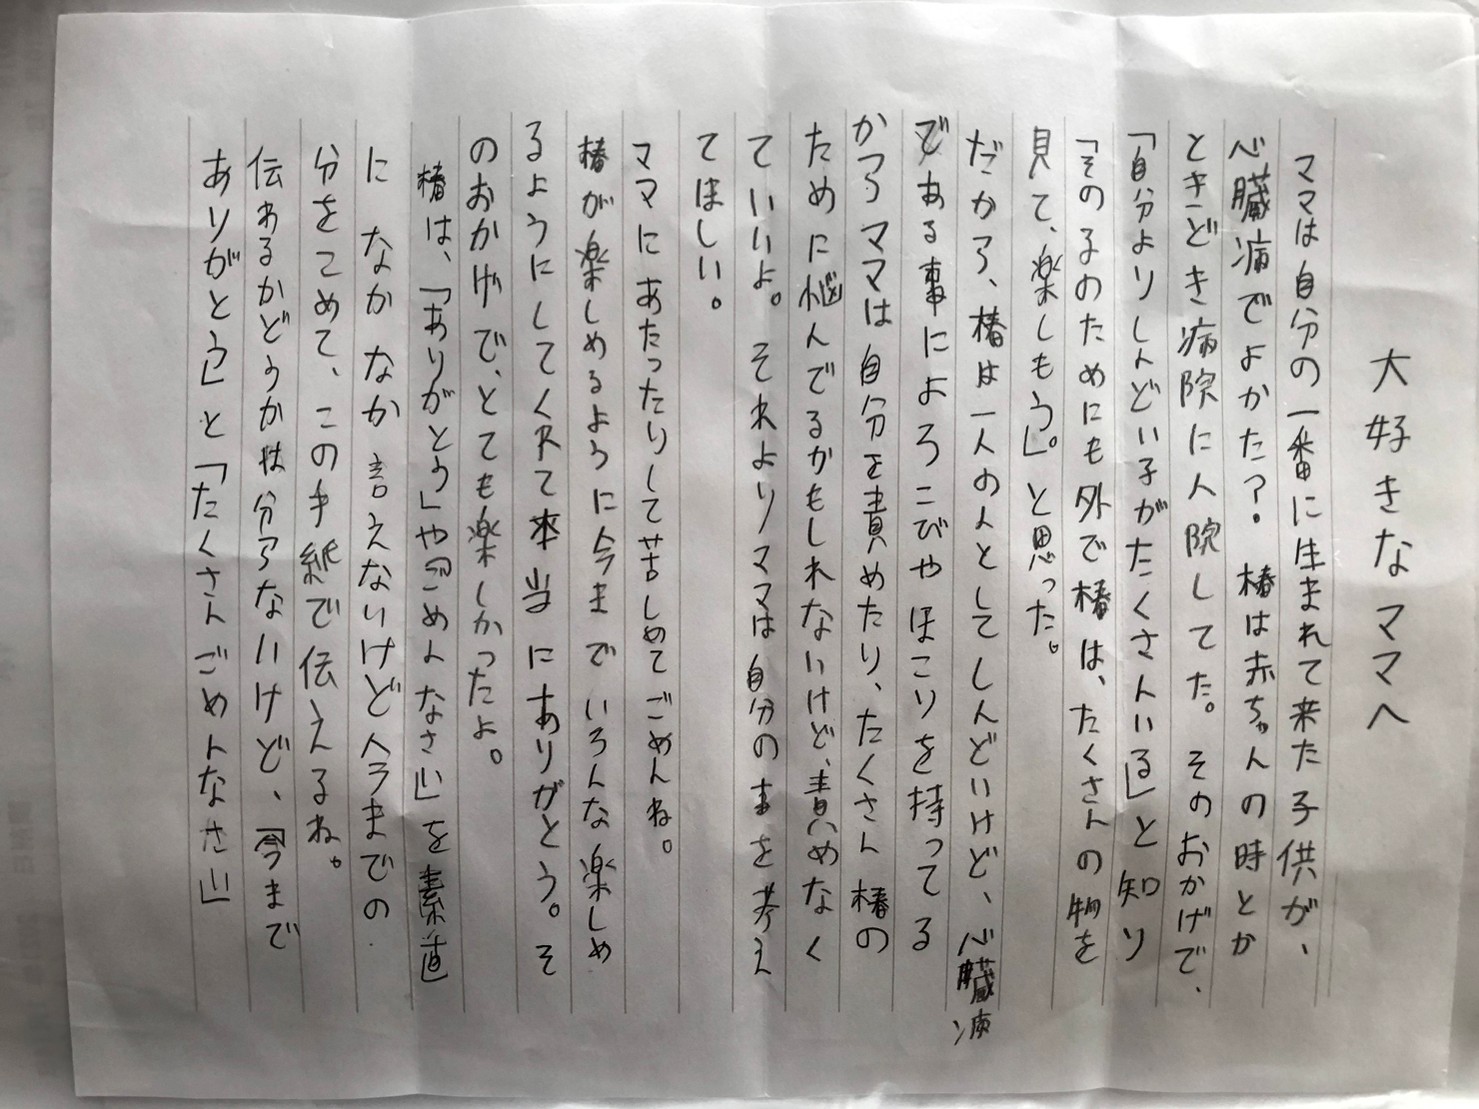 大好きなママへ
ママは自分の一番に生まれて来た子供が、
心臓病でよかた？椿は赤ちゃんの時とか
ときどき病院に入院してた。そのおかげで、
「自分よりしんどい子がたくさんいる」と知り
「その子のためにも外で椿は、たくさんの物を
見て、楽しもう」。と思った。
だから、椿は一人の人としてしんどいけど、心臓病
である事によろこびやほこりを持ってる
からママは自分を責めたり、たくさん椿の
ために悩んでるかもしれないけど、責めなく
ていいよ。それよりママは自分の事を考え
てほしい。
ママにあたったりして苦しめてごめんね。
椿が楽しめるように今までいろんな楽しめ
るようにしてくれて本当にありがとう。そ
のおかげで、とても楽しかったよ。
椿は、「ありがとう」や「ごめんなさい」を素直
になかなか言えないけど今までの
分をこめて、この手紙で伝えるね。
伝わるかどうかは分らないけど、「今まで
ありがとう」と「たくさんごめんなさい」